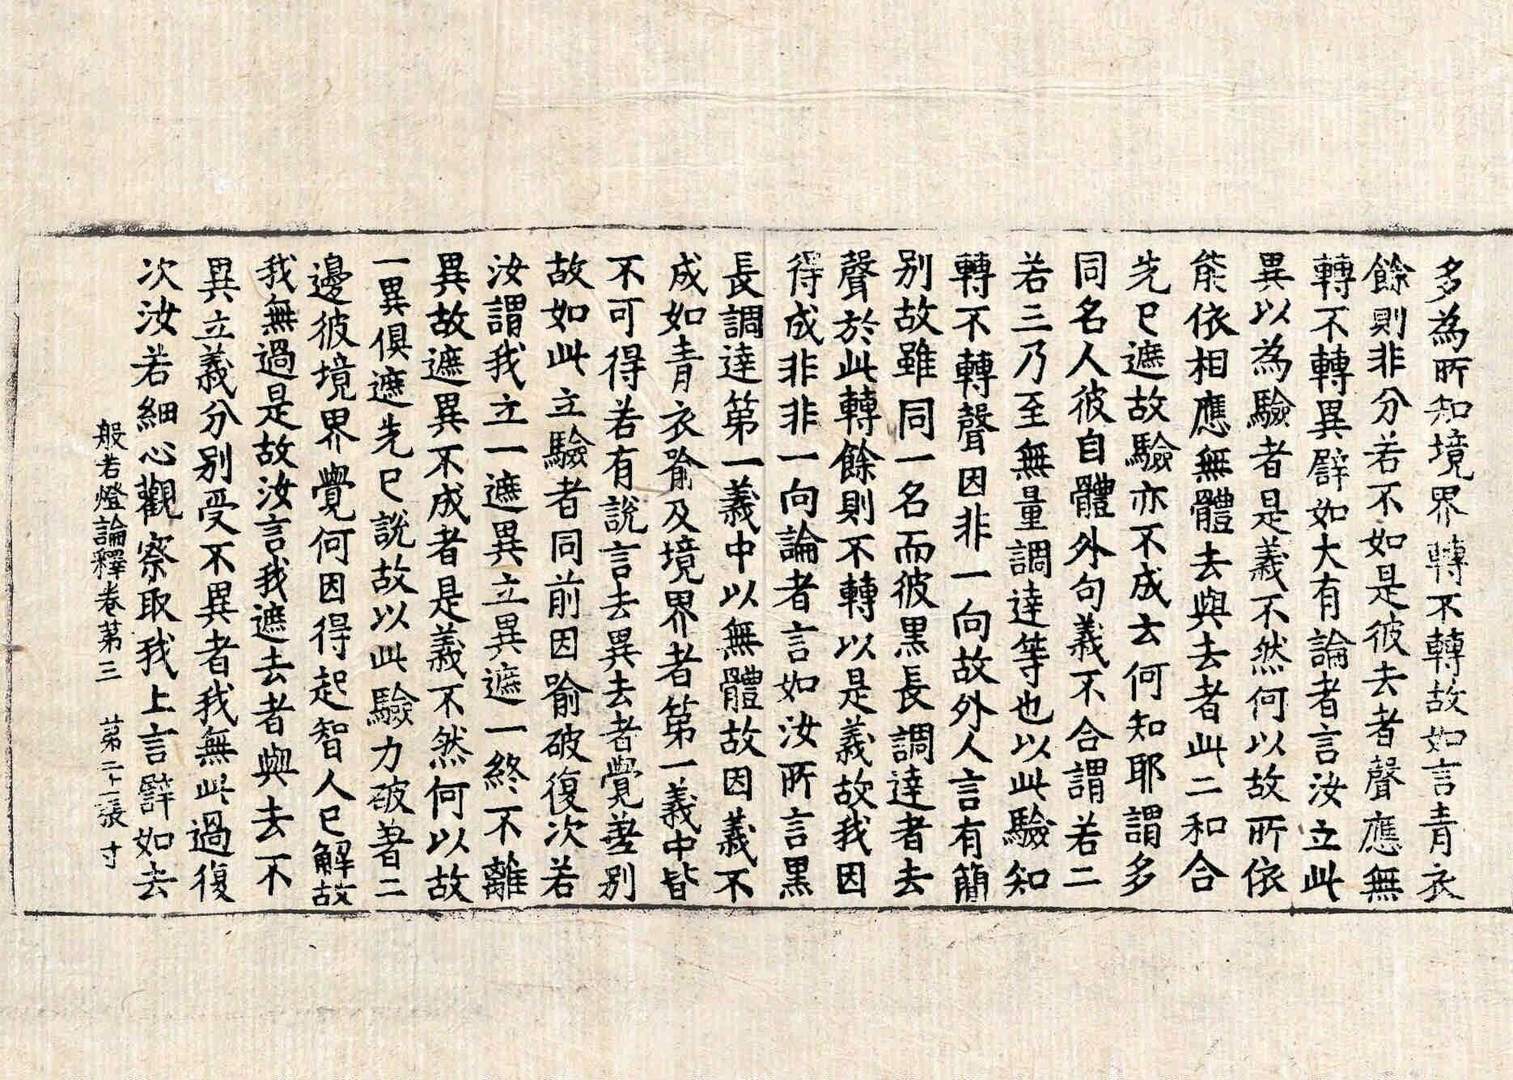 多為所知境界轉不轉故如言青衣
餘則非分若不如是彼去者聲應無
轉不轉異譬如大有論者言汝立此
異以為驗者是義不然何以故所依
能依相應無體去與去者此二和合
先已遮故驗亦不成云何知耶謂多
同名人彼自體外句義不合謂若二
若三乃至無量調達等也以此驗知
轉不轉聲因非一向故外人言有簡
別故雖同一名而彼黑長調達者去
聲於此轉餘則不轉以是義故我因
得成非非一向論者言如汝所言黑
長調達第一義中以無體故因義不
成如青衣喻及境界者第一義中皆
不可得若有說言去異去者覺差別
故如此立驗者同前因喻破復次若
汝謂我立一遮異立異遮一終不離
異故遮異不成者是義不然何以故
一異俱遮先已說故以此驗力破著二
邊彼境界覺何因得起智人已解故
我無過是故汝言我遮去者與去不
異立義分別受不異者我無此過復
次汝若細心觀察取我上言譬如去
般若燈論釋卷第三 第二十張 寸